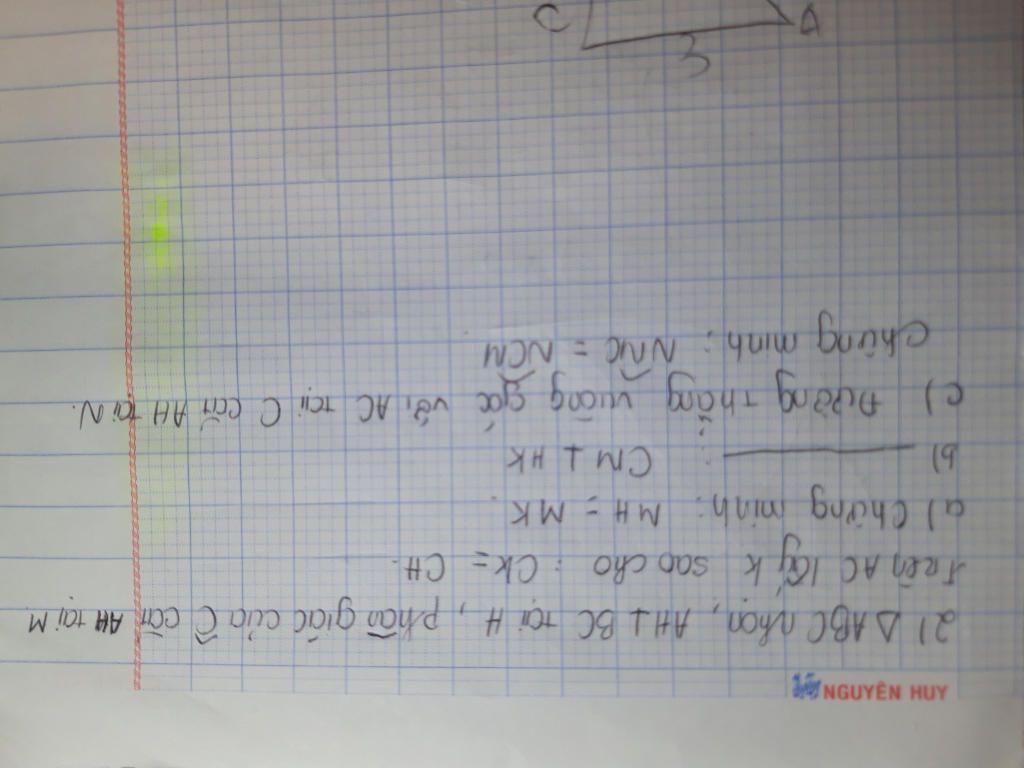 NGUYÊN HUY
2) ΔABC nhọn, AH ⊥ BC tại H, phân giác của Ĉ cắt AH tại M
trên AC lấy K sao cho : CK = CH.
a) Chứng minh : MH = MK.
b) ———— : CM ⊥ HK
c) Đường thẳng vuông góc với AC tại C cắt AH tại N.
Chứng minh : NMC = NCM
3
C A